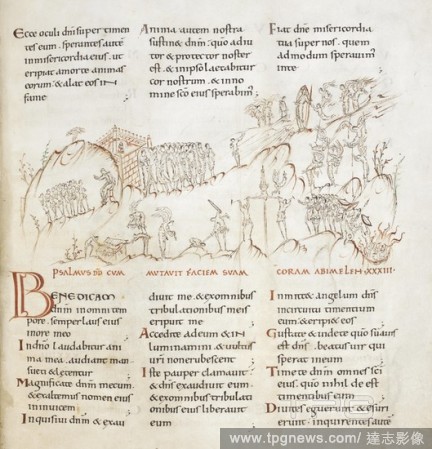 Ecce oculi dnī super timen
tes eum . sperantes autē
in misericordia eius . ut
eripiat a morte animas
eorum & alat eos in
fame
Anima autem nostra
sustin& dnm̄ . quo adiu
tor & protector noster
est . & in ipso laetabitur
cor nostrum . & in no
mine sc̄o eius sperabim;
Fiat dnē misericordia
tua super nos . quem
ad modum speravim;
in te
PSALMVS DD CVM MVTAVIT FACIEM SVAM CORAM ABIMELEH XXXIII
BENEDICAM
dnm̄ in omni tem
pore . semper laus eius
in ore meo
In dnō laudabitur ani
ma mea . audiant man
su&i & l&entur
Magnificate dnm̄ mecum .
& exaltemus nomen eius
in invicem
Inquisivi dnm̄ & exau
divit me . & ex omnibus
tribulationibus meis
eripuit me
Accedite ad eum & in
luminamini . & vultus
vr̄i non erubescent
Iste pauper clamavit
& dns̄ exaudivit eum .
& ex omnibus tribulati
onibus eius liberavit
eum
Inmitt& angelum dns̄
in circuitu timentium
eum . & eripi& eos
Gustate & videte quō suavis
est dns̄ . beatus vir qui
sperat in eum
Timete dnm̄ omnes sc̄i
eius . quō nihil deest
timentibus eum
Divites eguerunt & esuri
erunt . inquirentes autē
www.tpgnews.com / 達志影像